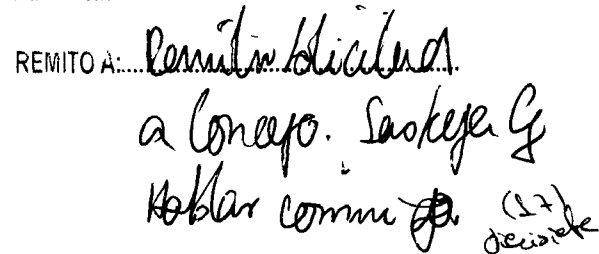 REMITO A: Remitir solicitud
a Concejo. Saskya G
Hablar conmigo
(17)
diecisiete